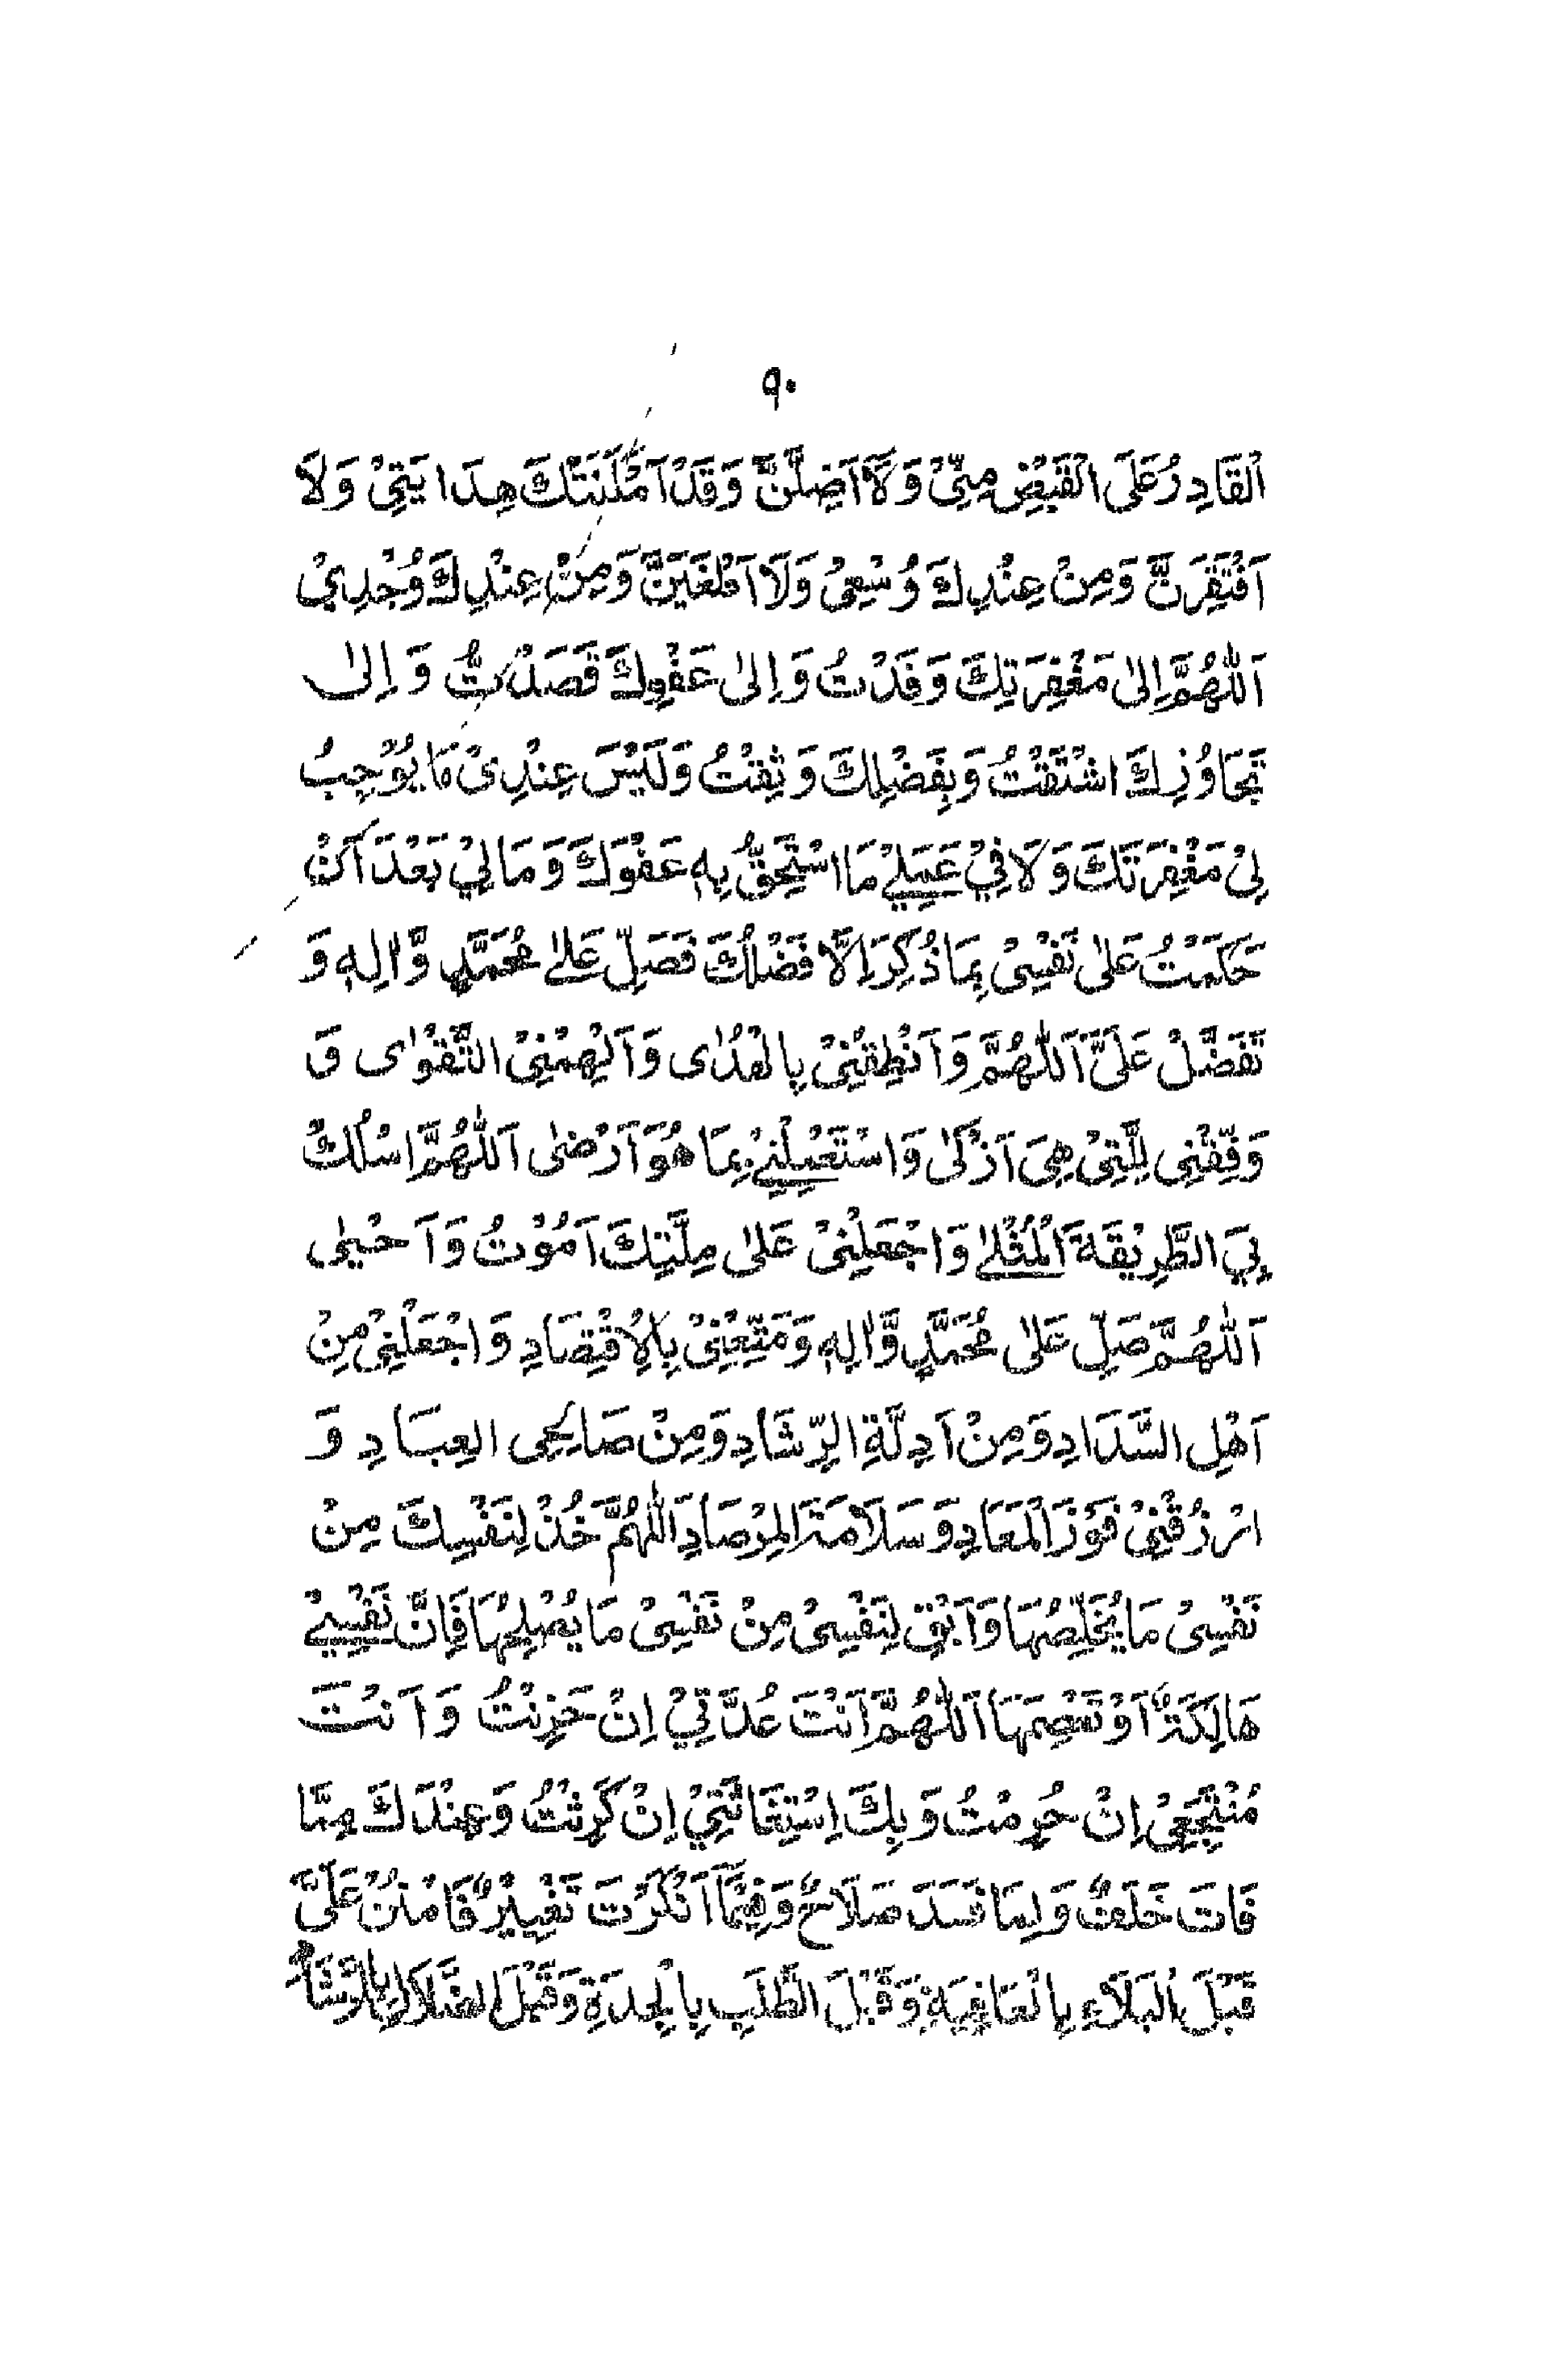 ۹۰
اَلْقَادِرُ عَلَى الْقَبْضِ مِنِّيْ وَلَا اَضِلَّنَّ وَقَدْ اَمْكَنَتْكَ هِدَايَتِيْ وَلَا
اَفْتَقِرَنَّ وَمِنْ عِنْدِكَ وُسْعِىْ وَلَا اَطْغَيَنَّ وَمِنْ عِنْدِكَ وُجْدِيْ
اَللّٰهُمَّ اِلىٰ مَغْفِرَتِكَ وَفَدْتُ وَاِلىٰ عَفْوِكَ قَصَدْتُ وَاِلىٰ
تَجَاوُزِكَ اشْتَقْتُ وَبِفَضْلِكَ وَثِقْتُ وَلَيْسَ عِنْدِىْ مَا يُوْجِبُ
لِىْ مَغْفِرَتَكَ وَلَا فِيْ عَمَلِيْ مَا اسْتَحِقُّ بِهٖ عَفْوَكَ وَمَا لِيْ بَعْدَ اَنْ
حَكَمْتُ عَلىٰ نَفْسِىْ بِمَا ذُكِرَ اِلَّا فَضْلُكَ فَصَلِّ عَلىٰ مُحَمَّدٍ وَّاٰلِهٖ وَ
تَفَضَّلْ عَلَىَّ اَللّٰهُمَّ وَاَنْطِقْنِىْ بِالْهُدٰى وَاَلْهِمْنِىْ التَّقْوٰى وَ
وَفِّقْنِى لِلَّتِىْ هِىَ اَزْكىٰ وَاسْتَعْمِلْنِيْ بِمَا هُوَ اَرْضىٰ اَللّٰهُمَّ اسْلُكْ
بِيَ الطَّرِيْقَةَ الْمُثْلٰے وَاجْعَلْنِىْ عَلىٰ مِلَّتِكَ اَمُوْتُ وَاَحْيىٰ
اَللّٰهُمَّ صَلِّ عَلىٰ مُحَمَّدٍ وَّاٰلِهٖ وَمَتِّعْنِىْ بِالْاِقْتِصَادِ وَاجْعَلْنِىْ مِنْ
اَهْلِ السَّدَادِ وَمِنْ اَدِلَّةِ الرِّشَادِ وَمِنْ صَالِحِى العِبَادِ وَ
ارْزُقْنِىْ فَوْزَ الْمَعَادِ وَسَلَامَةَ الْمِرْصَادِ اَللّٰهُمَّ خُذْ لِنَفْسِكَ مِنْ
نَفْسِىْ مَا يُخَلِّصُهَا وَاَبْقِ لِنَفْسِىْ مِنْ نَفْسِىْ مَا يُصْلِحُهَا فَاِنَّ نَفْسِيْ
هَالِكَةٌ اَوْ تَعْصِمَهَا اَللّٰهُمَّ اَنْتَ عُدَّتِيْ اِنْ حَزِنْتُ وَاَنْتَ
مُنْتَجَعِىْ اِنْ حُرِمْتُ وَبِكَ اِسْتِغَاثَتِيْ اِنْ كَرِثْتُ وَعِنْدَكَ مِمَّا
فَاتَ خَلَفٌ وَلِمَا فَسَدَ صَلَاحٌ وَفِيْمَا اَنْكَرْتَ تَغْيِيْرٌ فَامْنُنْ عَلَىَّ
قَبْلَ الْبَلَاءِ بِالْعَافِيَةِ وَقَبْلَ الطَّلَبِ بِالْجِدَةِ وَقَبْلَ الضَّلَالِ بِالرَّشَادِ